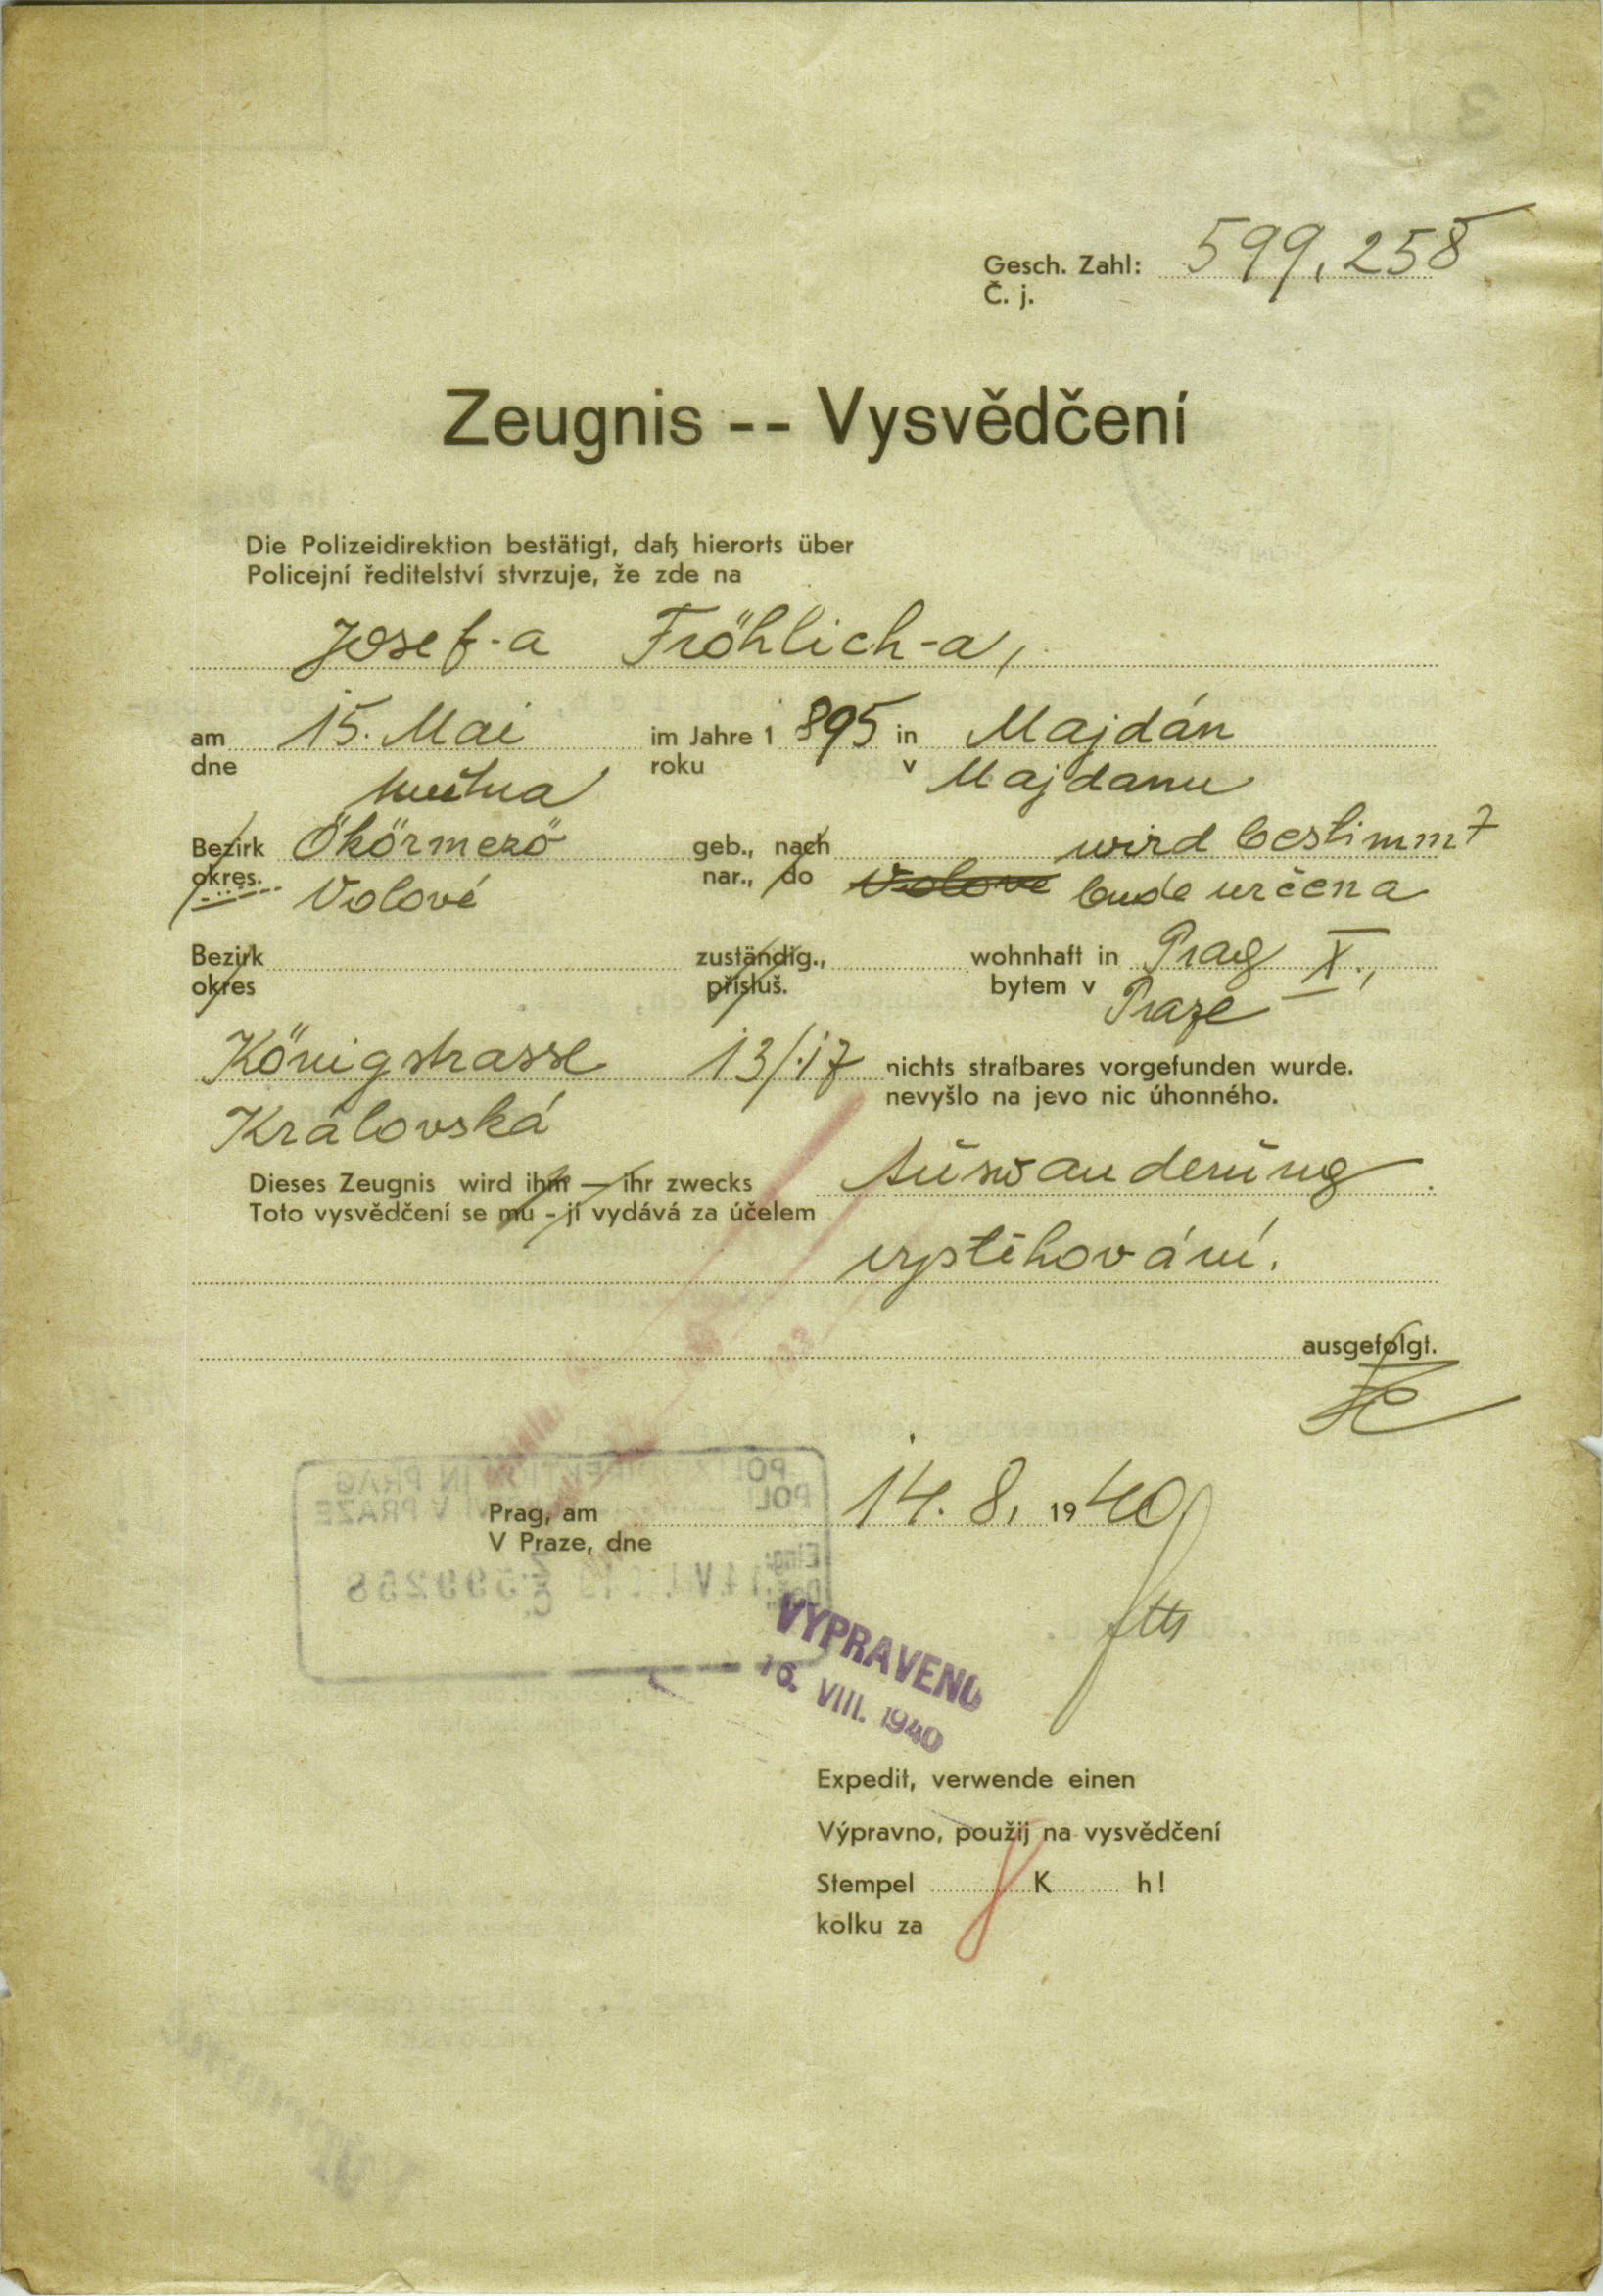 Gesch. Zahl: 599,258
Č. j.
Zeugnis -- Vysvědčení
Die Polizeidirektion bestätigt, daß hierorts über
Policejní ředitelství stvrzuje, že zde na
Josef-a Fröhlich-a,
am 15. Mai im Jahre 1 895 in Majdán
dne května roku v Majdanu
Bezirk Ökörmező geb., nach wird bestimmt
okres. Volové nar., do Volové bude určena
Bezirk zuständig., wohnhaft in Prag X.,
okres přísluš. bytem v Praze
Königstrasse 13/17 nichts strafbares vorgefunden wurde.
Královská nevyšlo na jevo nic úhonného.
Dieses Zeugnis wird ihm — ihr zwecks Auswanderung
Toto vysvědčení se mu - jí vydává za účelem
vystěhování.
ausgefolgt.
Prag, am 14. 8. 1940
V Praze, dne
VYPRAVENO
16. VIII. 1940
Expedit, verwende einen
Výpravno, použij na vysvědčení
Stempel K h!
kolku za